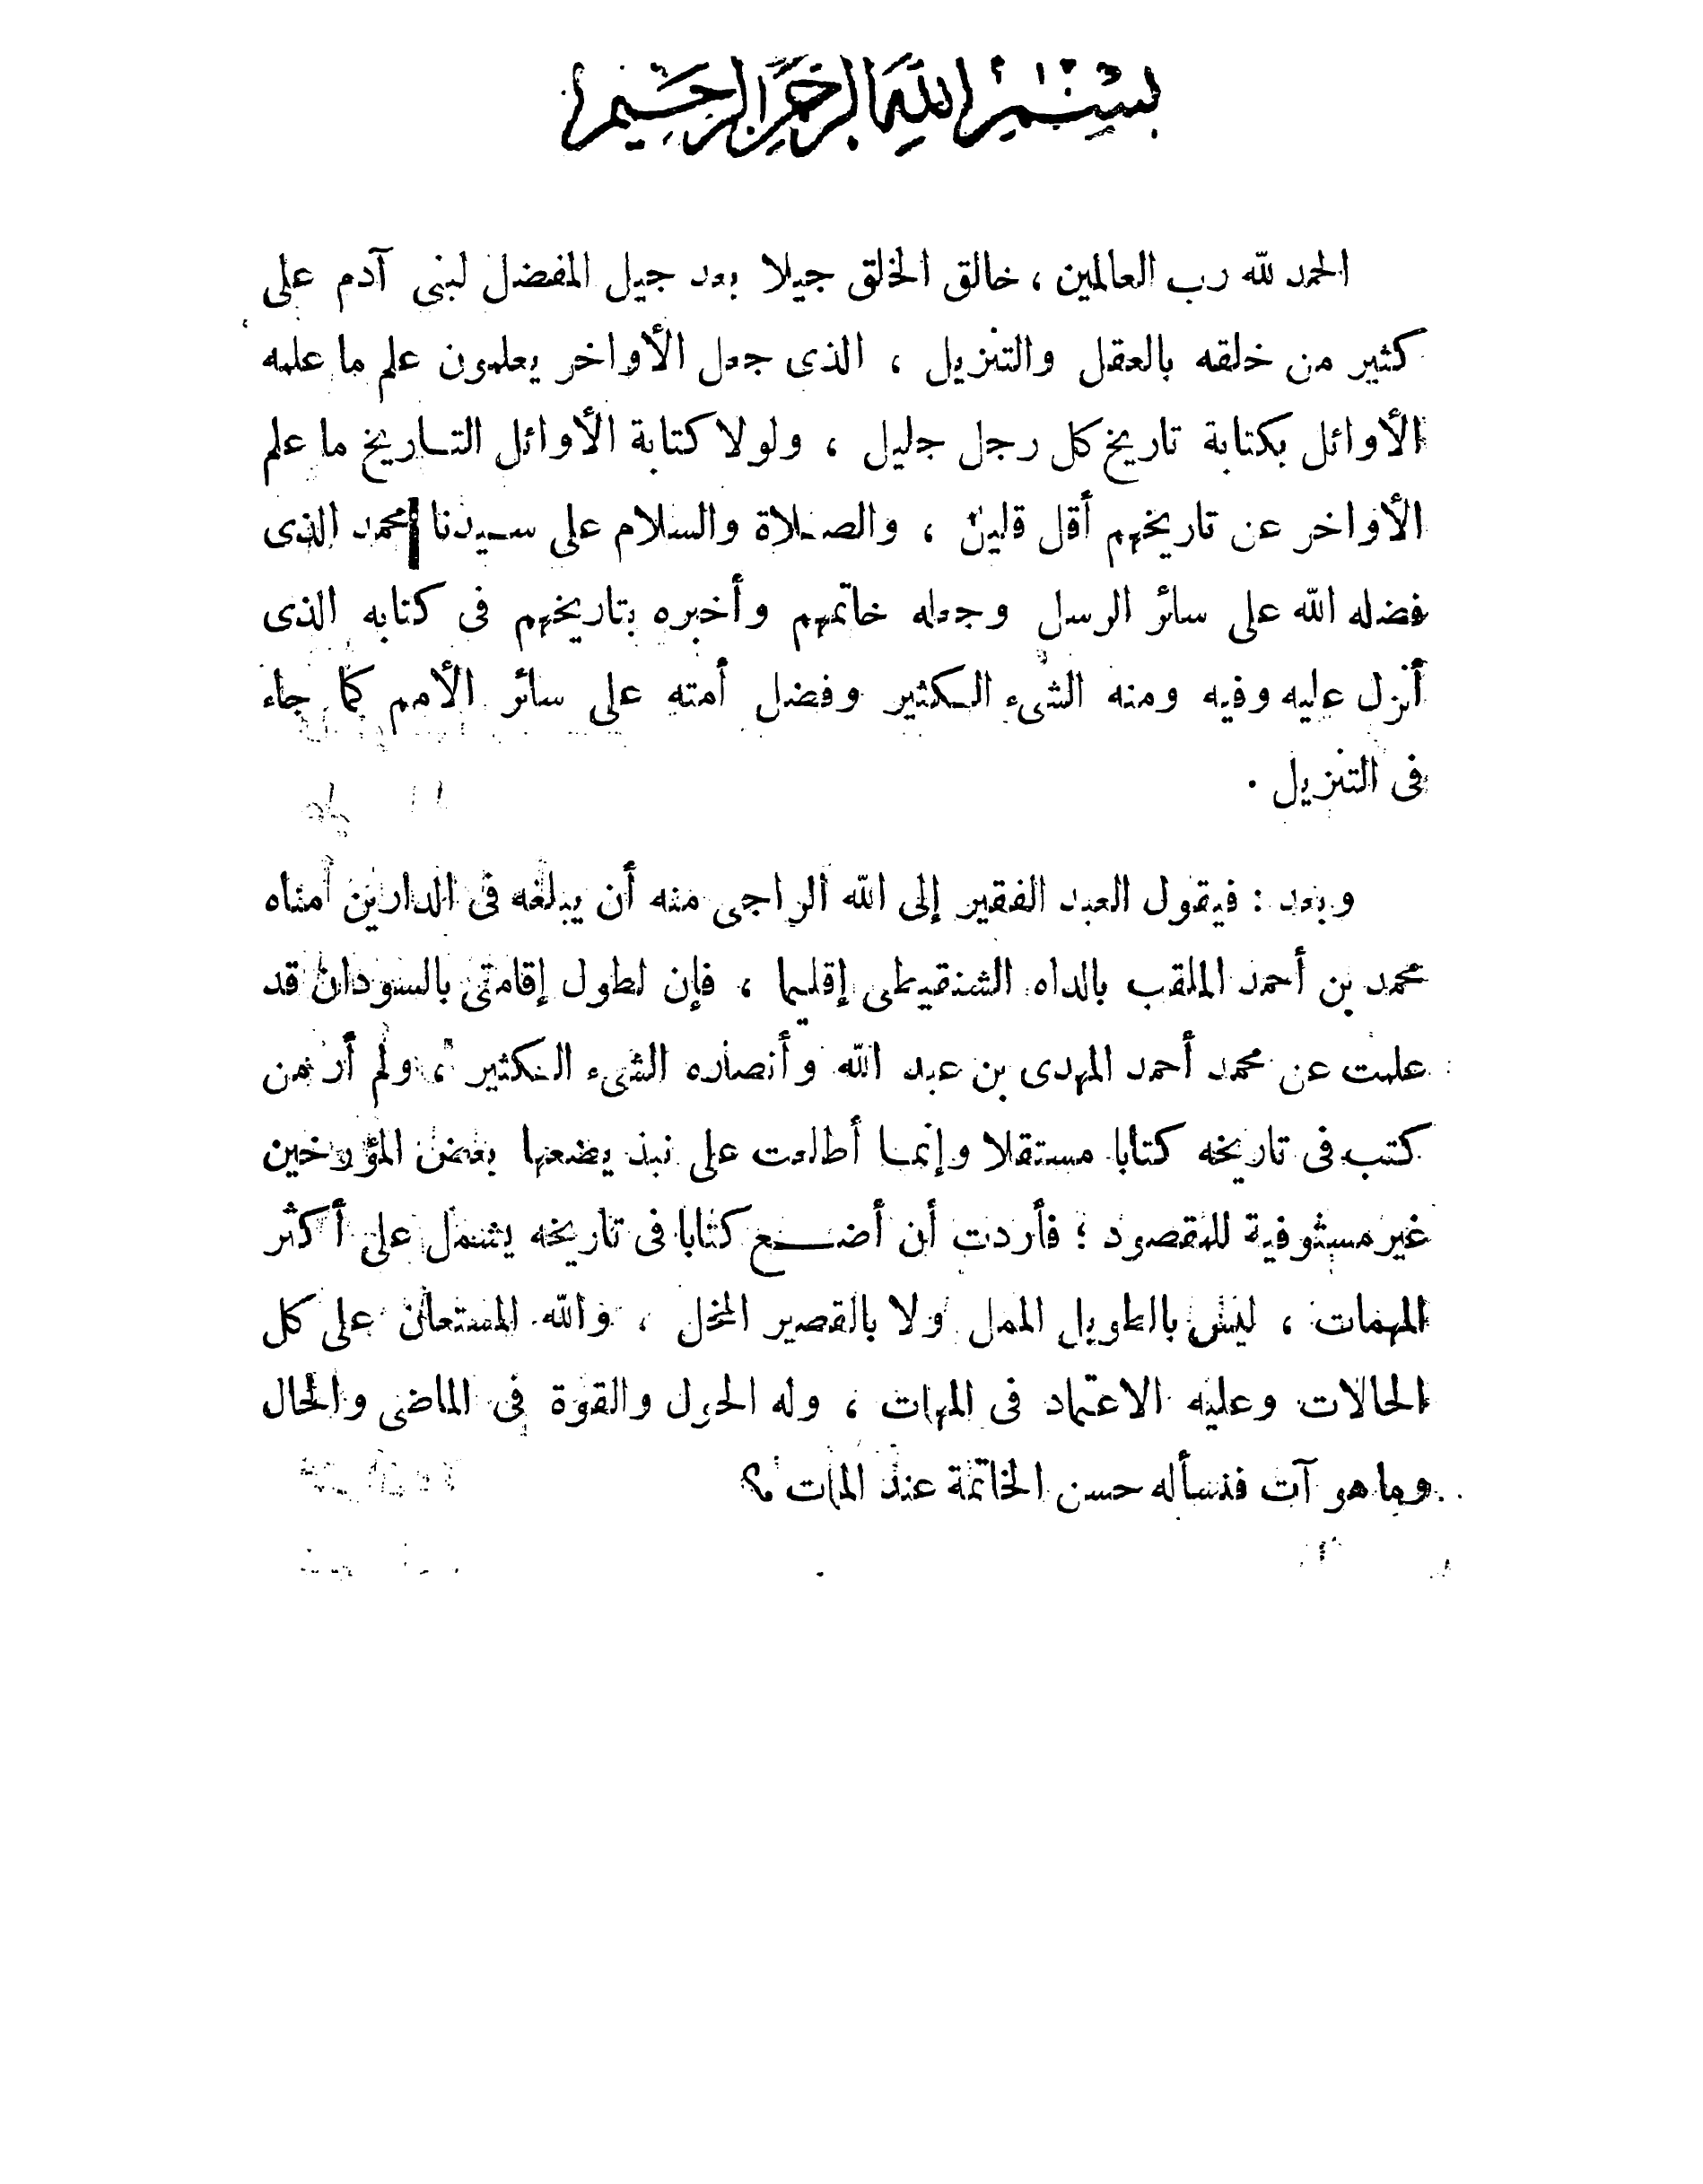 بسم الله الرحمن الرحيم
الحمد لله رب العالمين ، خالق الخلق جيلا بعد جيل المفضل لبنى آدم على
كثير من خلقه بالعقل والتنزيل ، الذى جعل الأواخر يعلمون علم ما علمه
الأوائل بكتابة تاريخ كل رجل جليل ، ولولا كتابة الأوائل التاريخ ما علم
الأواخر عن تاريخهم أقل قليل ، والصلاة والسلام على سيدنا محمد الذى
فضله الله على سائر الرسل وجعله خاتمهم وأخبره بتاريخهم فى كتابه الذى
أنزل عليه وفيه ومنه الشىء الكثير وفضل أمته على سائر الأمم كما جاء
فى التنزيل .
وبعد : فيقول العبد الفقير إلى الله الراجى منه أن يبلغه فى الدارين أمناه
محمد بن أحمد الملقب بالداه الشنقيطى إقليما ، فإن لطول إقامتى بالسودان قد
علمت عن محمد أحمد المهدى بن عبد الله وأنصاره الشىء الكثير ، ولم أر من
كتب فى تاريخه كتابا مستقلا وإنما أطلعت على نبذ يضعها بعض المؤرخين
غير مستوفية للمقصود ؛ فأردت أن أضع كتابا فى تاريخه يشمل على أكثر
المهمات ، ليس بالطويل الممل ولا بالقصير المخل ، والله المستعان على كل
الحالات وعليه الاعتماد فى المهمات ، وله الحول والقوة فى الماضى والحال
وما هو آت فنسأله حسن الخاتمة عند الممات